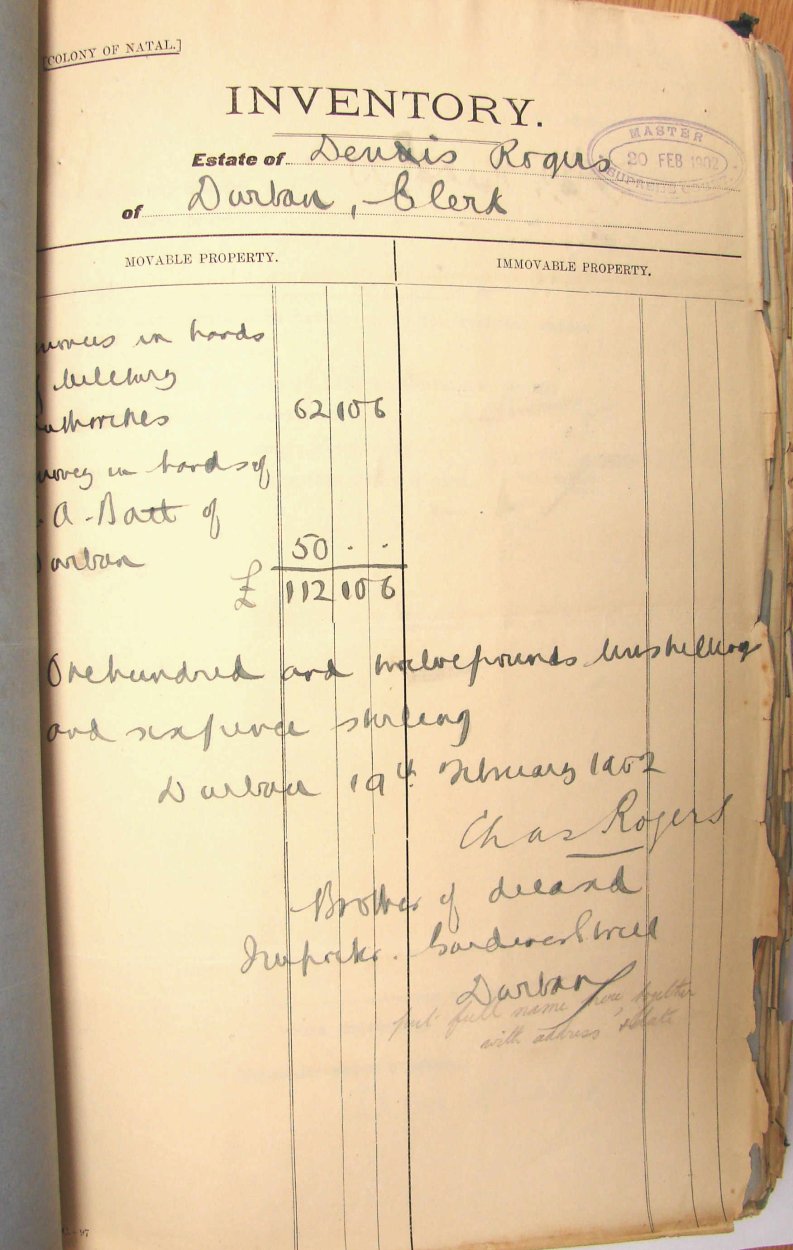 [COLONY OF NATAL.]
INVENTORY.
MASTER
20 FEB 1902
SUPREME
Estate of Dennis Rogers
of Durban, Clerk
MOVABLE PROPERTY. IMMOVABLE PROPERTY.
in hands
Military
62 10 6
money in hands of
A. Batt of
50 . .
£ 112 10 6
One hundred and twelve pounds ten shillings
and sixpence sterling
Durban 19th February 1902
Chas Rogers
Brother of deceased
Gardiner Street
Durban
put full name here together
with address & date
97